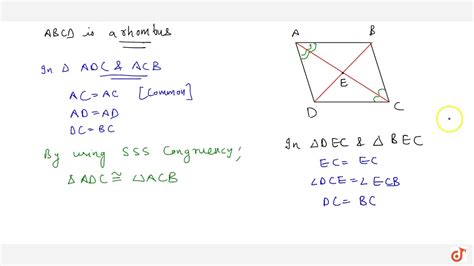 ABCD is a rhombus
In Δ ADC & ACB
AC = AC [Common]
AD = AD
DC = BC
By using SSS Congruency;
Δ ADC ≅ △ACB
A B
E
D C
In △DEC & △ BEC
EC = EC
∠DCE = ∠ECB
DC = BC